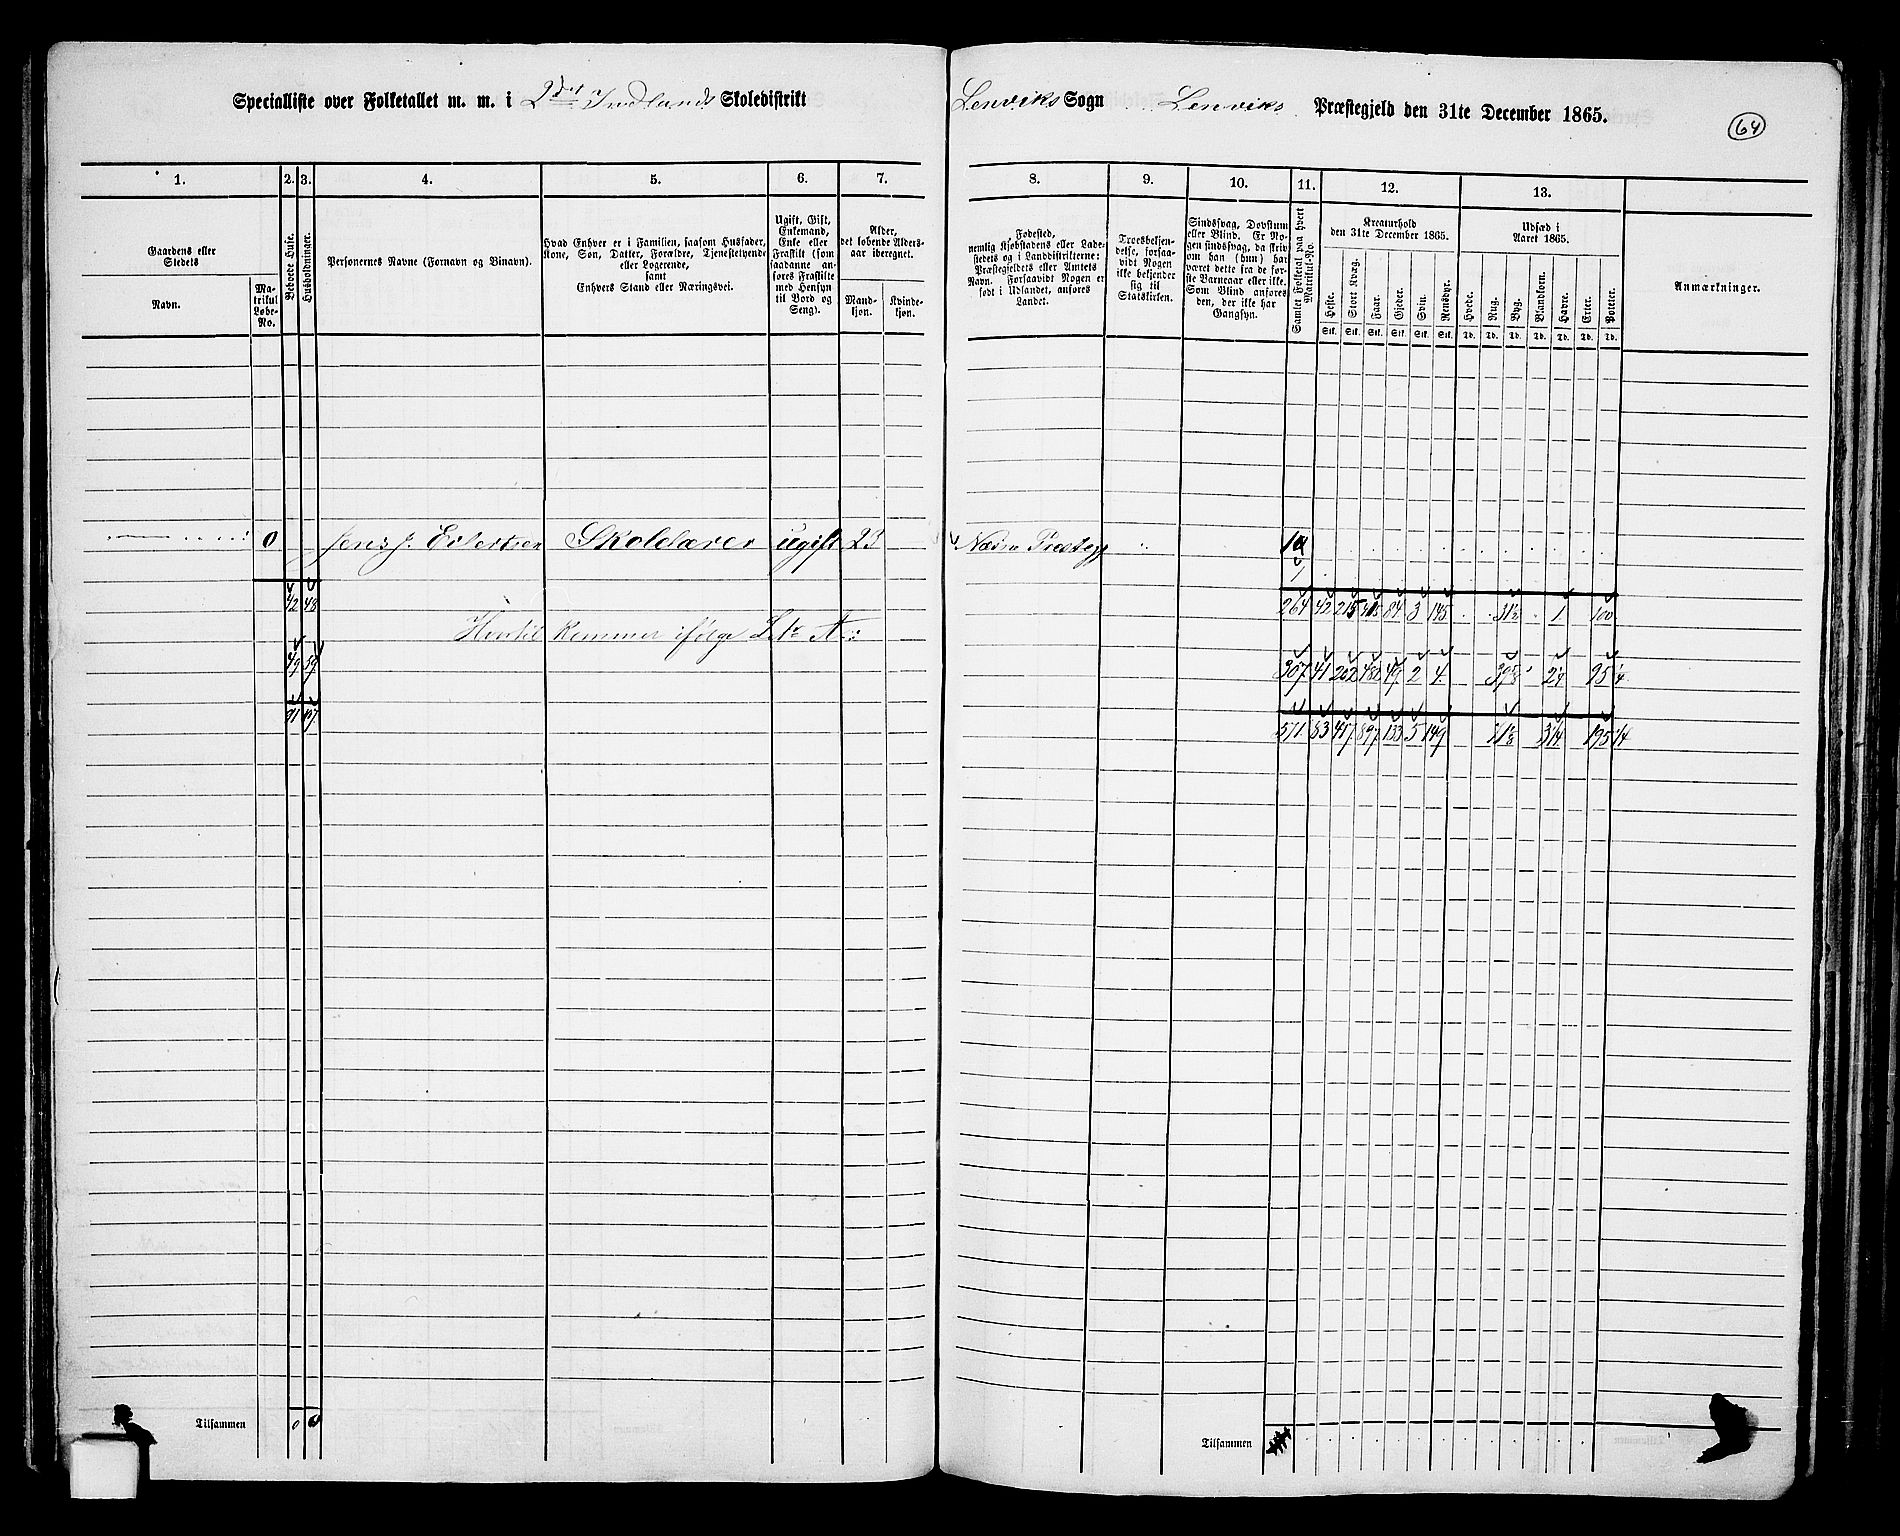 Specialliste over Folketallet m. m. i 2det Indlands Skoledistrikt Lenviks Sogn Lenviks Præstegjeld den 31te December 1865.
64
1. 2. 3. 4. 5. 6. 7. 8. 9. 10. 11. 12. 13.
Gaardens eller Stedets
Navn.
Matrikul Løbe-No.
Beboede Huse.
Husholdninger.
Personernes Navne (Fornavn og Binavn).
Hvad Enhver er i Familien, saasom Husfader, Kone, Søn, Datter, Forældre, Tjenestetyende eller Logerende,
samt
Enhvers Stand eller Næringsvei.
Ugift, Gift, Enkemand, Enke eller Fraskilt (som saadanne anføres Fraskilte med Hensyn til Bord og Seng).
Alder, det løbende Alders-aar iberegnet.
Mand-kjøn.
Kvinde-kjøn.
Fødested, nemlig Kjøbstadens eller Ladestedets og i Landdistrikterne: Præstegjeldets eller Amtets Navn. Forsaavidt Nogen er født i Udlandet, anføres Landet.
Troesbekjendelse, forsaavidt Nogen ikke bekjender sig til Statskirken.
Sindssvag, Døvstum eller Blind. Er Nogen sindssvag, da skrives om han (hun) har været dette fra de første Barneaar eller ikke. Som Blind anføres den, der ikke har Gangsyn.
Samlet Folketal paa hvert Matrikul-No.
Kreaturhold den 31te December 1865.
Heste. Stort Kvæg. Faar. Gjeder. Svin. Rensdyr.
Stk. Stk. Stk. Stk. Stk. Stk.
Udsæd i Aaret 1865.
Hvede. Rug. Byg. Blandkorn. Havre. Erter. Poteter.
Td. Td. Td. Td. Td. Td. Td.
Anmærkninger.
0 Jens J. Evertsen Skolelærer ugift 23
1
42 48 264 42 215 84 3 145 31½ 1 100
Hvortil kommer ifølge Litr A:
49 59 307 41 202 482 49 2 4 95 ¼
91 107 571 83 417 897 133 5 149 195 ¼
Tilsammen 0 0
Tilsammen